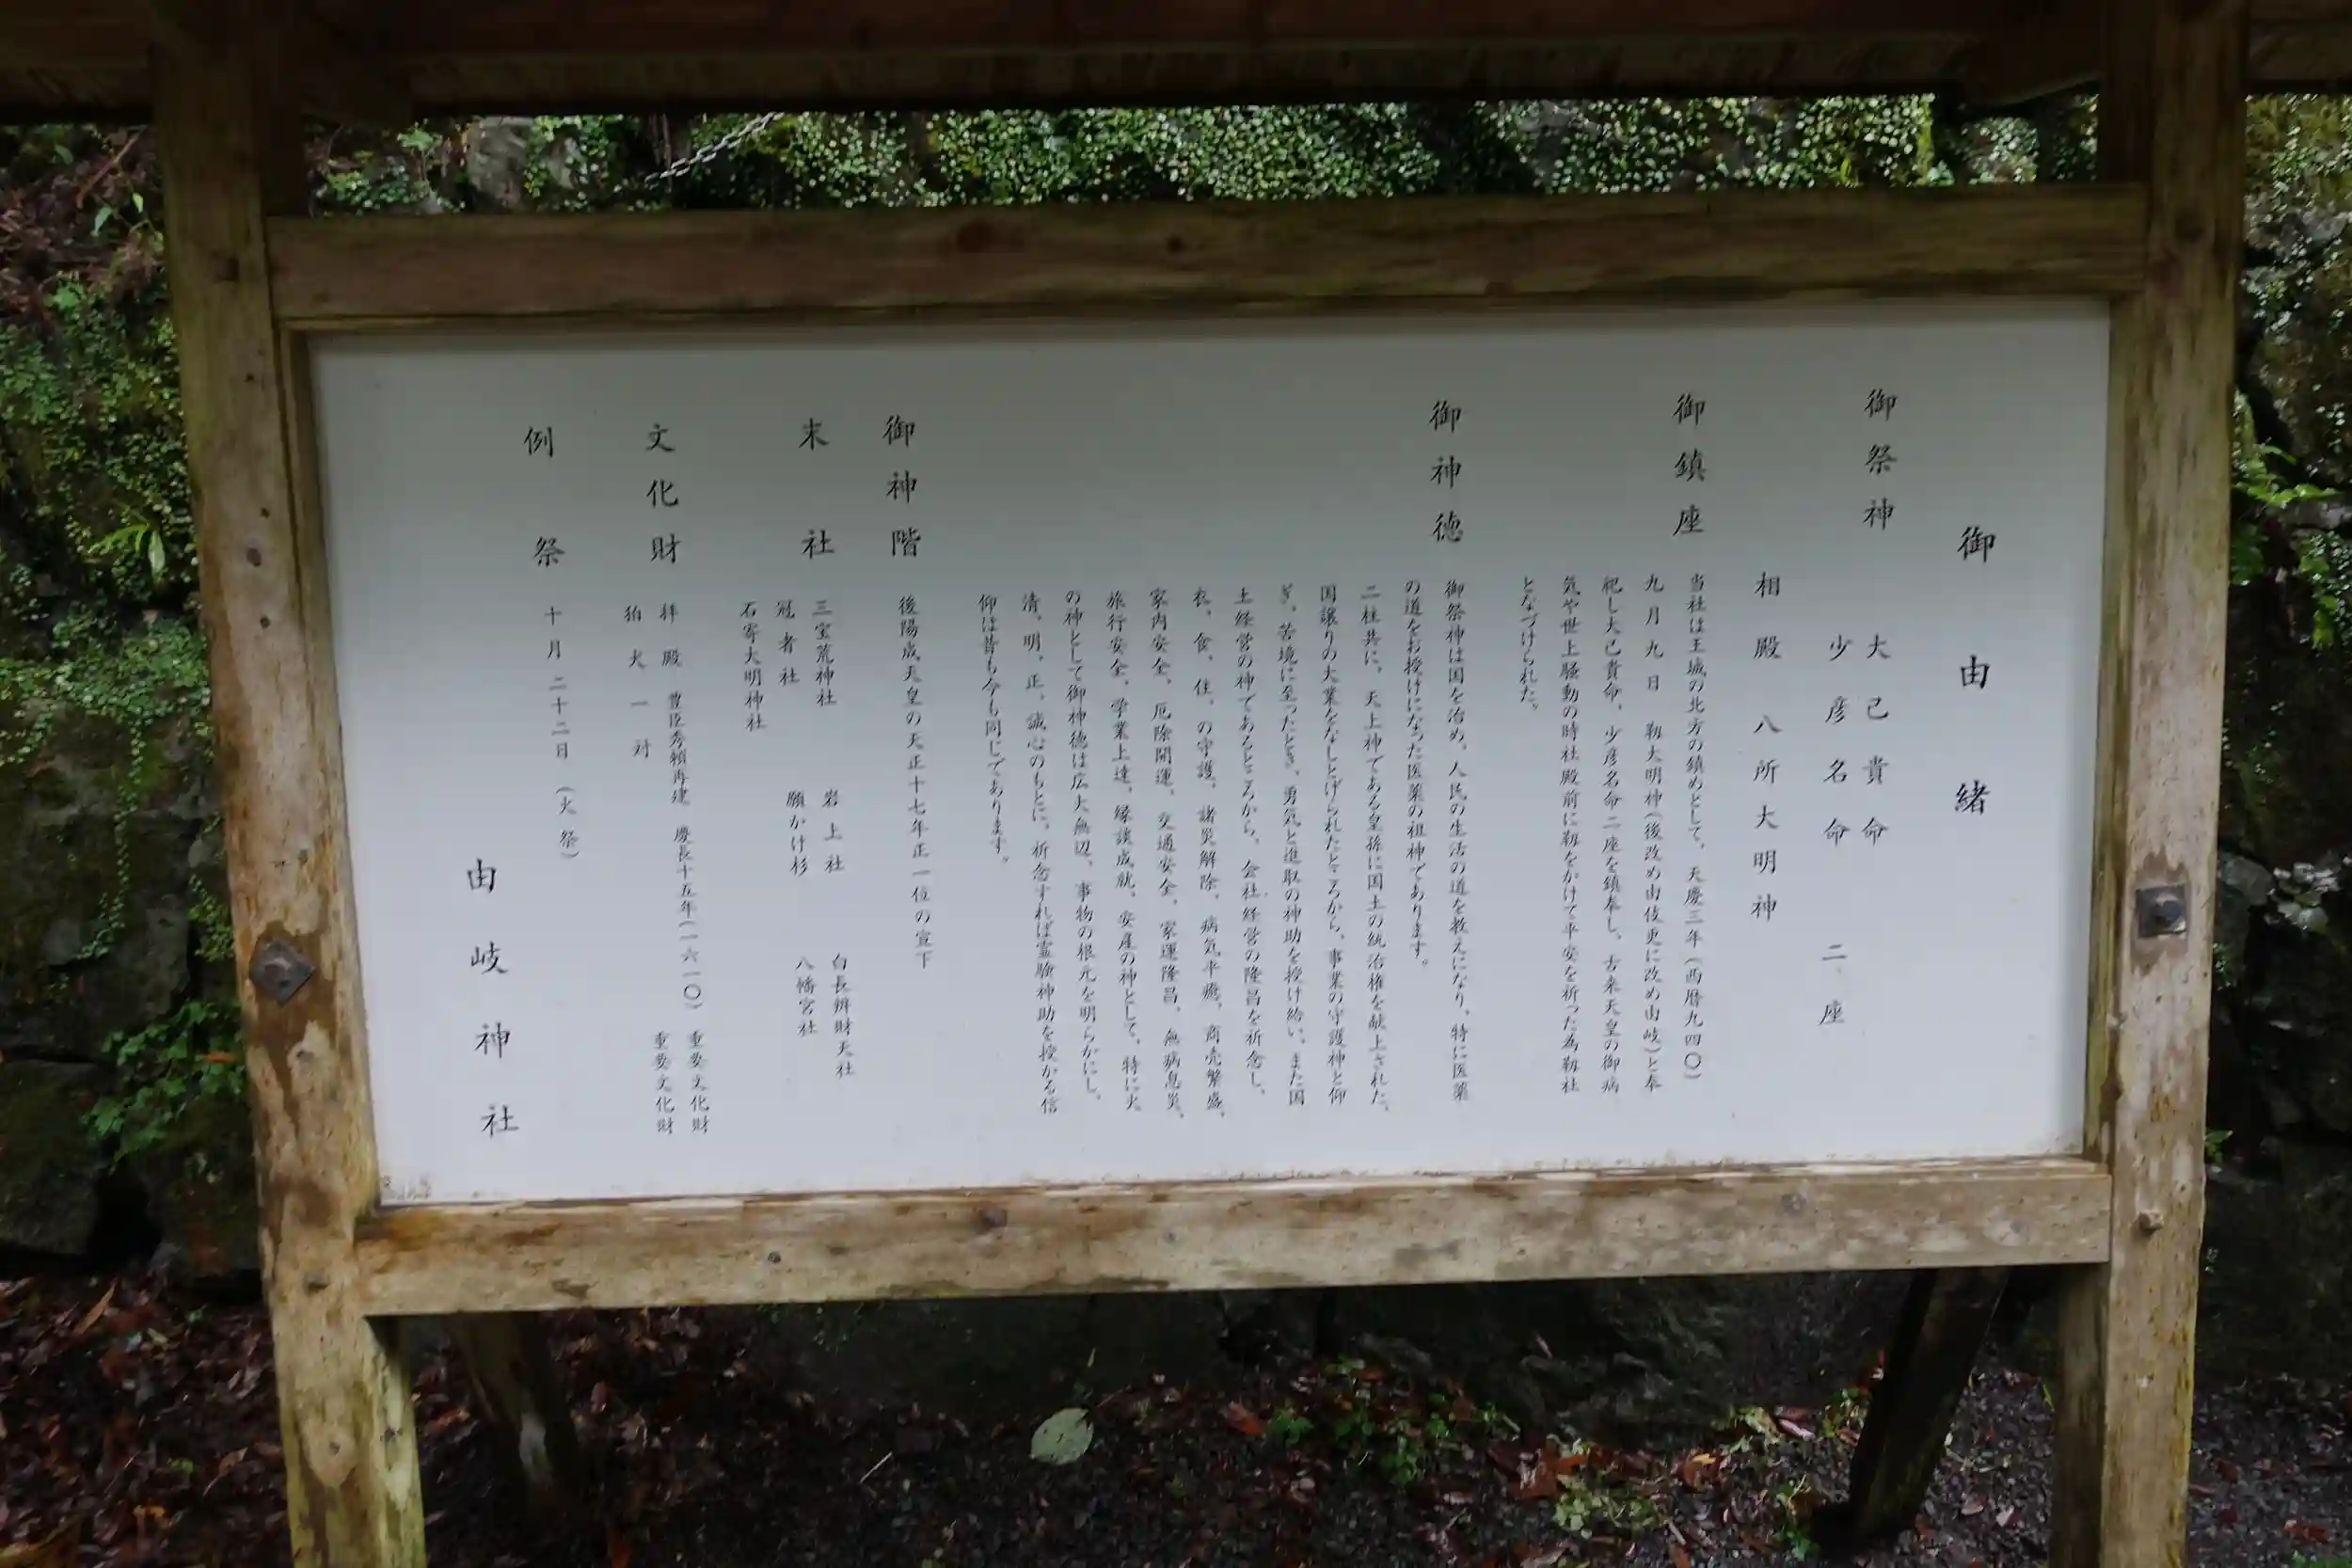 御由緒
御祭神
大己貴命
少彦名命 二座
相殿 八所大明神
御鎮座
当社は王城の北方の鎮めとして、天慶三年(西暦九四〇)
九月九日 靱大明神(後改め由伎更に改め由岐)と奉
祀し大己貴命、少彦名命二座を鎮奉し、古来天皇の御病
気や世上騒動の時社殿前に靱をかけて平安を祈った為靱社
となづけられた。
御神徳
御祭神は国を治め、人民の生活の道を教えになり、特に医薬
の道をお授けになった医薬の祖神であります。
二柱共に、天上神である皇孫に国土の統治権を献上された、
国譲りの大業をなしとげられたところから、事業の守護神と仰
ぎ、苦境に至ったとき、勇気と進取の神助を授け給い、また国
土経営の神であるところから、会社経営の隆昌を祈念し、
衣、食、住、の守護、諸災解除、病気平癒、商売繁盛、
家内安全、厄除開運、交通安全、家運隆昌、無病息災、
旅行安全、学業上達、縁談成就、安産の神として、特に火
の神として御神徳は広大無辺、事物の根元を明らかにし、
清、明、正、誠心のもとに、祈念すれば霊験神助を授かる信
仰は昔も今も同じであります。
御神階
後陽成天皇の天正十七年正一位の宣下
末社
三宝荒神社 岩上社 白長辨財天社
冠者社 願かけ杉 八幡宮社
石寄大明神社
文化財
拝殿 豊臣秀頼再建 慶長十五年(一六一〇) 重要文化財
狛犬一対 重要文化財
例祭 十月二十二日 (火祭)
由岐神社